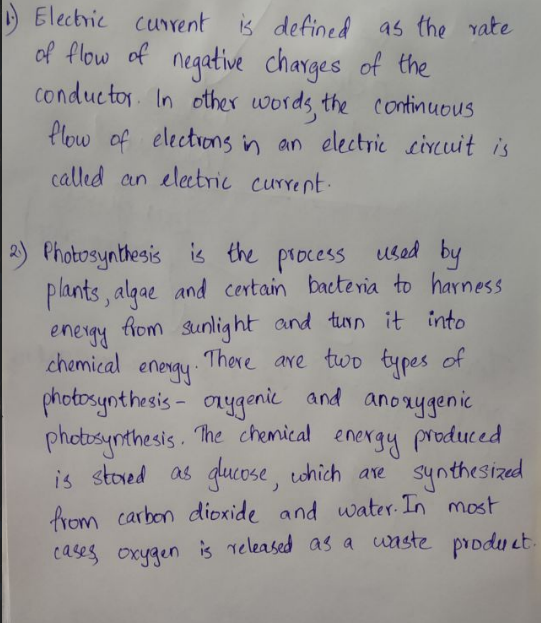 1) Electric current is defined as the rate
of flow of negative charges of the
conductor. In other words, the continuous
flow of electrons in an electric circuit is
called an electric current.
2) Photosynthesis is the process used by
plants, algae and certain bacteria to harness
energy from sunlight and turn it into
chemical energy. There are two types of
photosynthesis - oxygenic and anoxygenic
photosynthesis. The chemical energy produced
is stored as glucose, which are synthesized
from carbon dioxide and water. In most
cases, oxygen is released as a waste product.